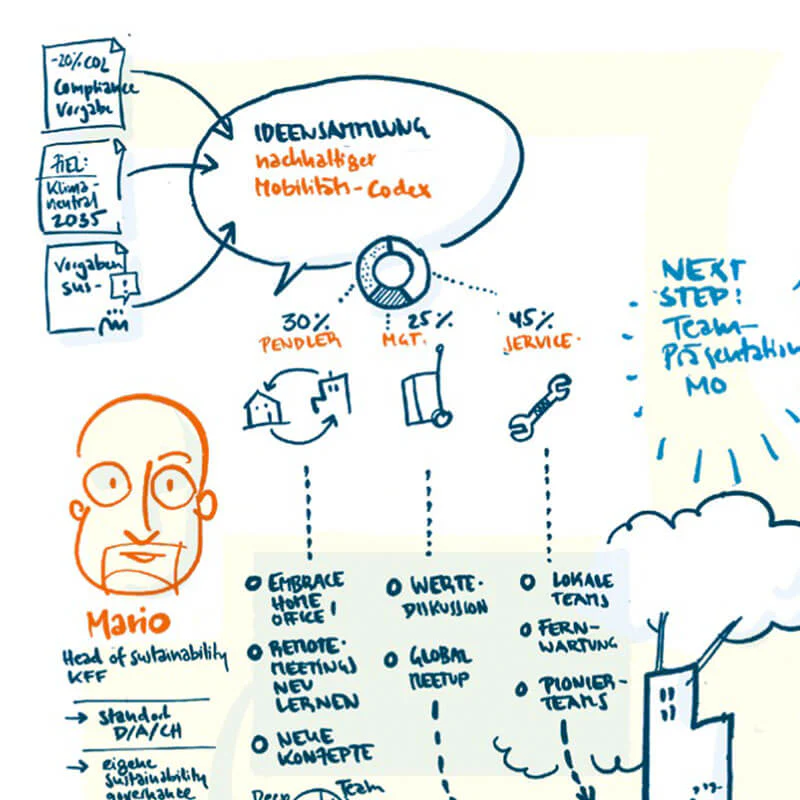 -20% CO2
Compliance
Vorgabe
ZIEL:
Klima-
neutral
2035
Vorgaben
sus-
!
IDEENSAMMLUNG
nachhaltiger
Mobilitäts-Codex
30%
PENDLER
25%
MGT.
45%
SERVICE.
NEXT
STEP!
Team-
Präsentation
MO
Mario
Head of sustainability
KFF
→ standort
D/A/CH
→ eigene
sustainability
governance
EMBRACE
HOME
OFFICE!
REMOTE-
MEETINGS
NEU
LERNEN
NEUE
KONZEPTE
Deep
Team
WERTE-
DISKUSSION
GLOBAL
MEETUP
LOKALE
TEAMS
FERN-
WARTUNG
PIONIER-
TEAMS